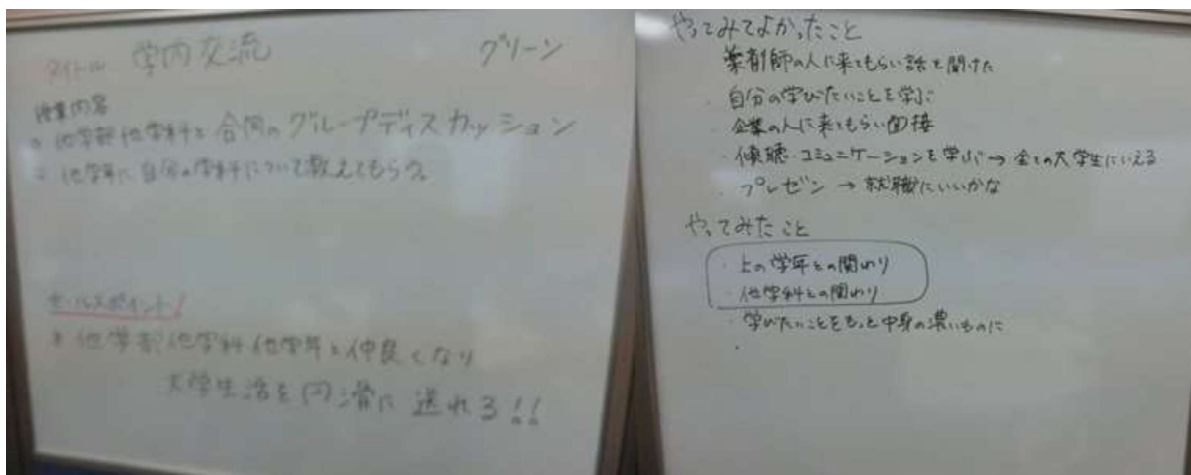 タイトル 学内交流
グリーン
授業内容
他学部他学科と合同のグループディスカッション
他学年に自分の学科について教えてもらう。
セールスポイント!
他学部他学科他学年と仲良くなり
大学生活を円滑に送れる!!
やってみてよかったこと
・薬剤師の人に来てもらい話を聞けた
・自分の学びたいことを学ぶ
・企業の人に来てもらい面接
・傾聴・コミュニケーションを学ぶ→全ての大学生にいえる
・プレゼン → 就職にいいかな
やってみたこと
・上の学年との関わり
・他学科との関わり
・学びたいことをもっと中身の濃いものに
・